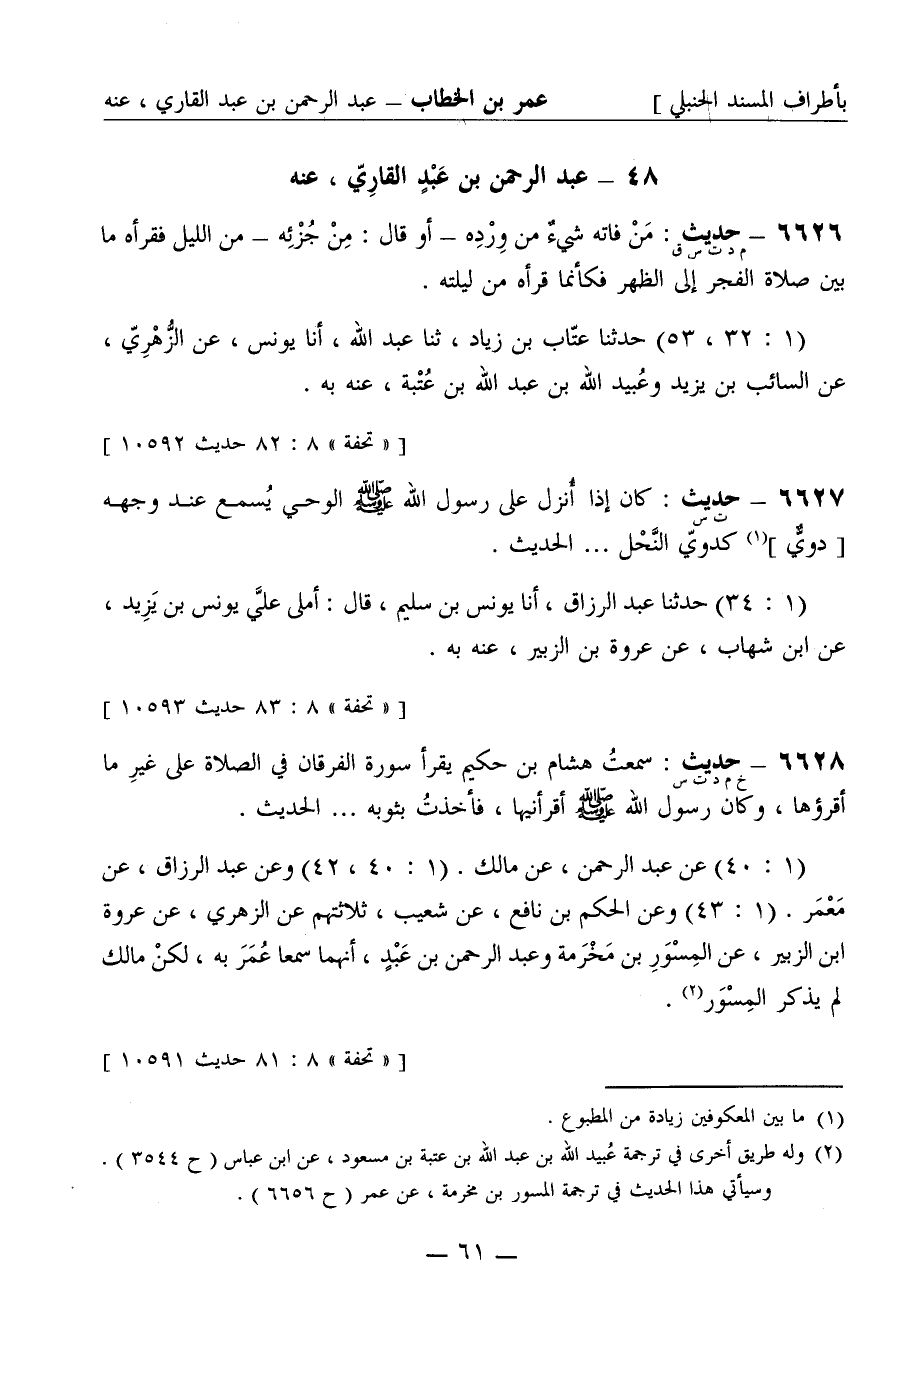 بأطراف المسند الحنبلي ] عمر بن الخطاب – عبد الرحمن بن عبد القاري ، عنه
٤٨ – عبد الرحمن بن عَبْدٍ القارِيّ ، عنه
٦٦٢٦ – حديث : مَنْ فاته شيءٌ من وِرْدِه – أو قال : مِنْ جُزْئِه – من الليل فقرأه ما
م د ت س ق
بين صلاة الفجر إلى الظهر فكأنما قرأه من ليلته .
(١ : ٣٢ ، ٥٣) حدثنا عتّاب بن زياد ، ثنا عبد الله ، أنا يونس ، عن الزُّهْرِيّ ،
عن السائب بن يزيد وعُبيد الله بن عبد الله بن عُتْبة ، عنه به .
[ « تحفة » ٨ : ٨٢ حديث ١٠٥٩٢ ]
٦٦٢٧ – حديث : كان إذا أُنزل على رسول الله ﷺ الوحي يُسمع عند وجهه
ت س
[ دويٌّ ](١) كدويّ النَّحْل ... الحديث .
(١ : ٣٤) حدثنا عبد الرزاق ، أنا يونس بن سليم ، قال : أملى عليَّ يونس بن يَزِيد ،
عن ابن شهاب ، عن عروة بن الزبير ، عنه به .
[ « تحفة » ٨ : ٨٣ حديث ١٠٥٩٣ ]
٦٦٢٨ – حديث : سمعتُ هشام بن حكيم يقرأ سورة الفرقان في الصلاة على غيرِ ما
خ م د ت س
أقرؤها ، وكان رسول الله ﷺ أقرأنيها ، فأخذتُ بثوبه ... الحديث .
(١ : ٤٠) عن عبد الرحمن ، عن مالك . (١ : ٤٠ ، ٤٢) وعن عبد الرزاق ، عن
مَعْمَر . (١ : ٤٣) وعن الحكم بن نافع ، عن شعيب ، ثلاثتهم عن الزهري ، عن عروة
ابن الزبير ، عن المِسْوَرِ بن مَخْرَمة وعبد الرحمن بن عَبْدٍ ، أنهما سمعا عُمَرَ به ، لكنْ مالك
لم يذكر المِسْوَر(٢) .
[ « تحفة » ٨ : ٨١ حديث ١٠٥٩١ ]
(١) ما بين المعكوفين زيادة من المطبوع .
(٢) وله طريق أخرى في ترجمة عُبيد الله بن عبد الله بن عتبة بن مسعود ، عن ابن عباس ( ح ٣٥٤٤ ) .
وسيأتي هذا الحديث في ترجمة المسور بن مخرمة ، عن عمر ( ح ٦٦٥٦ ) .
– ٦١ –